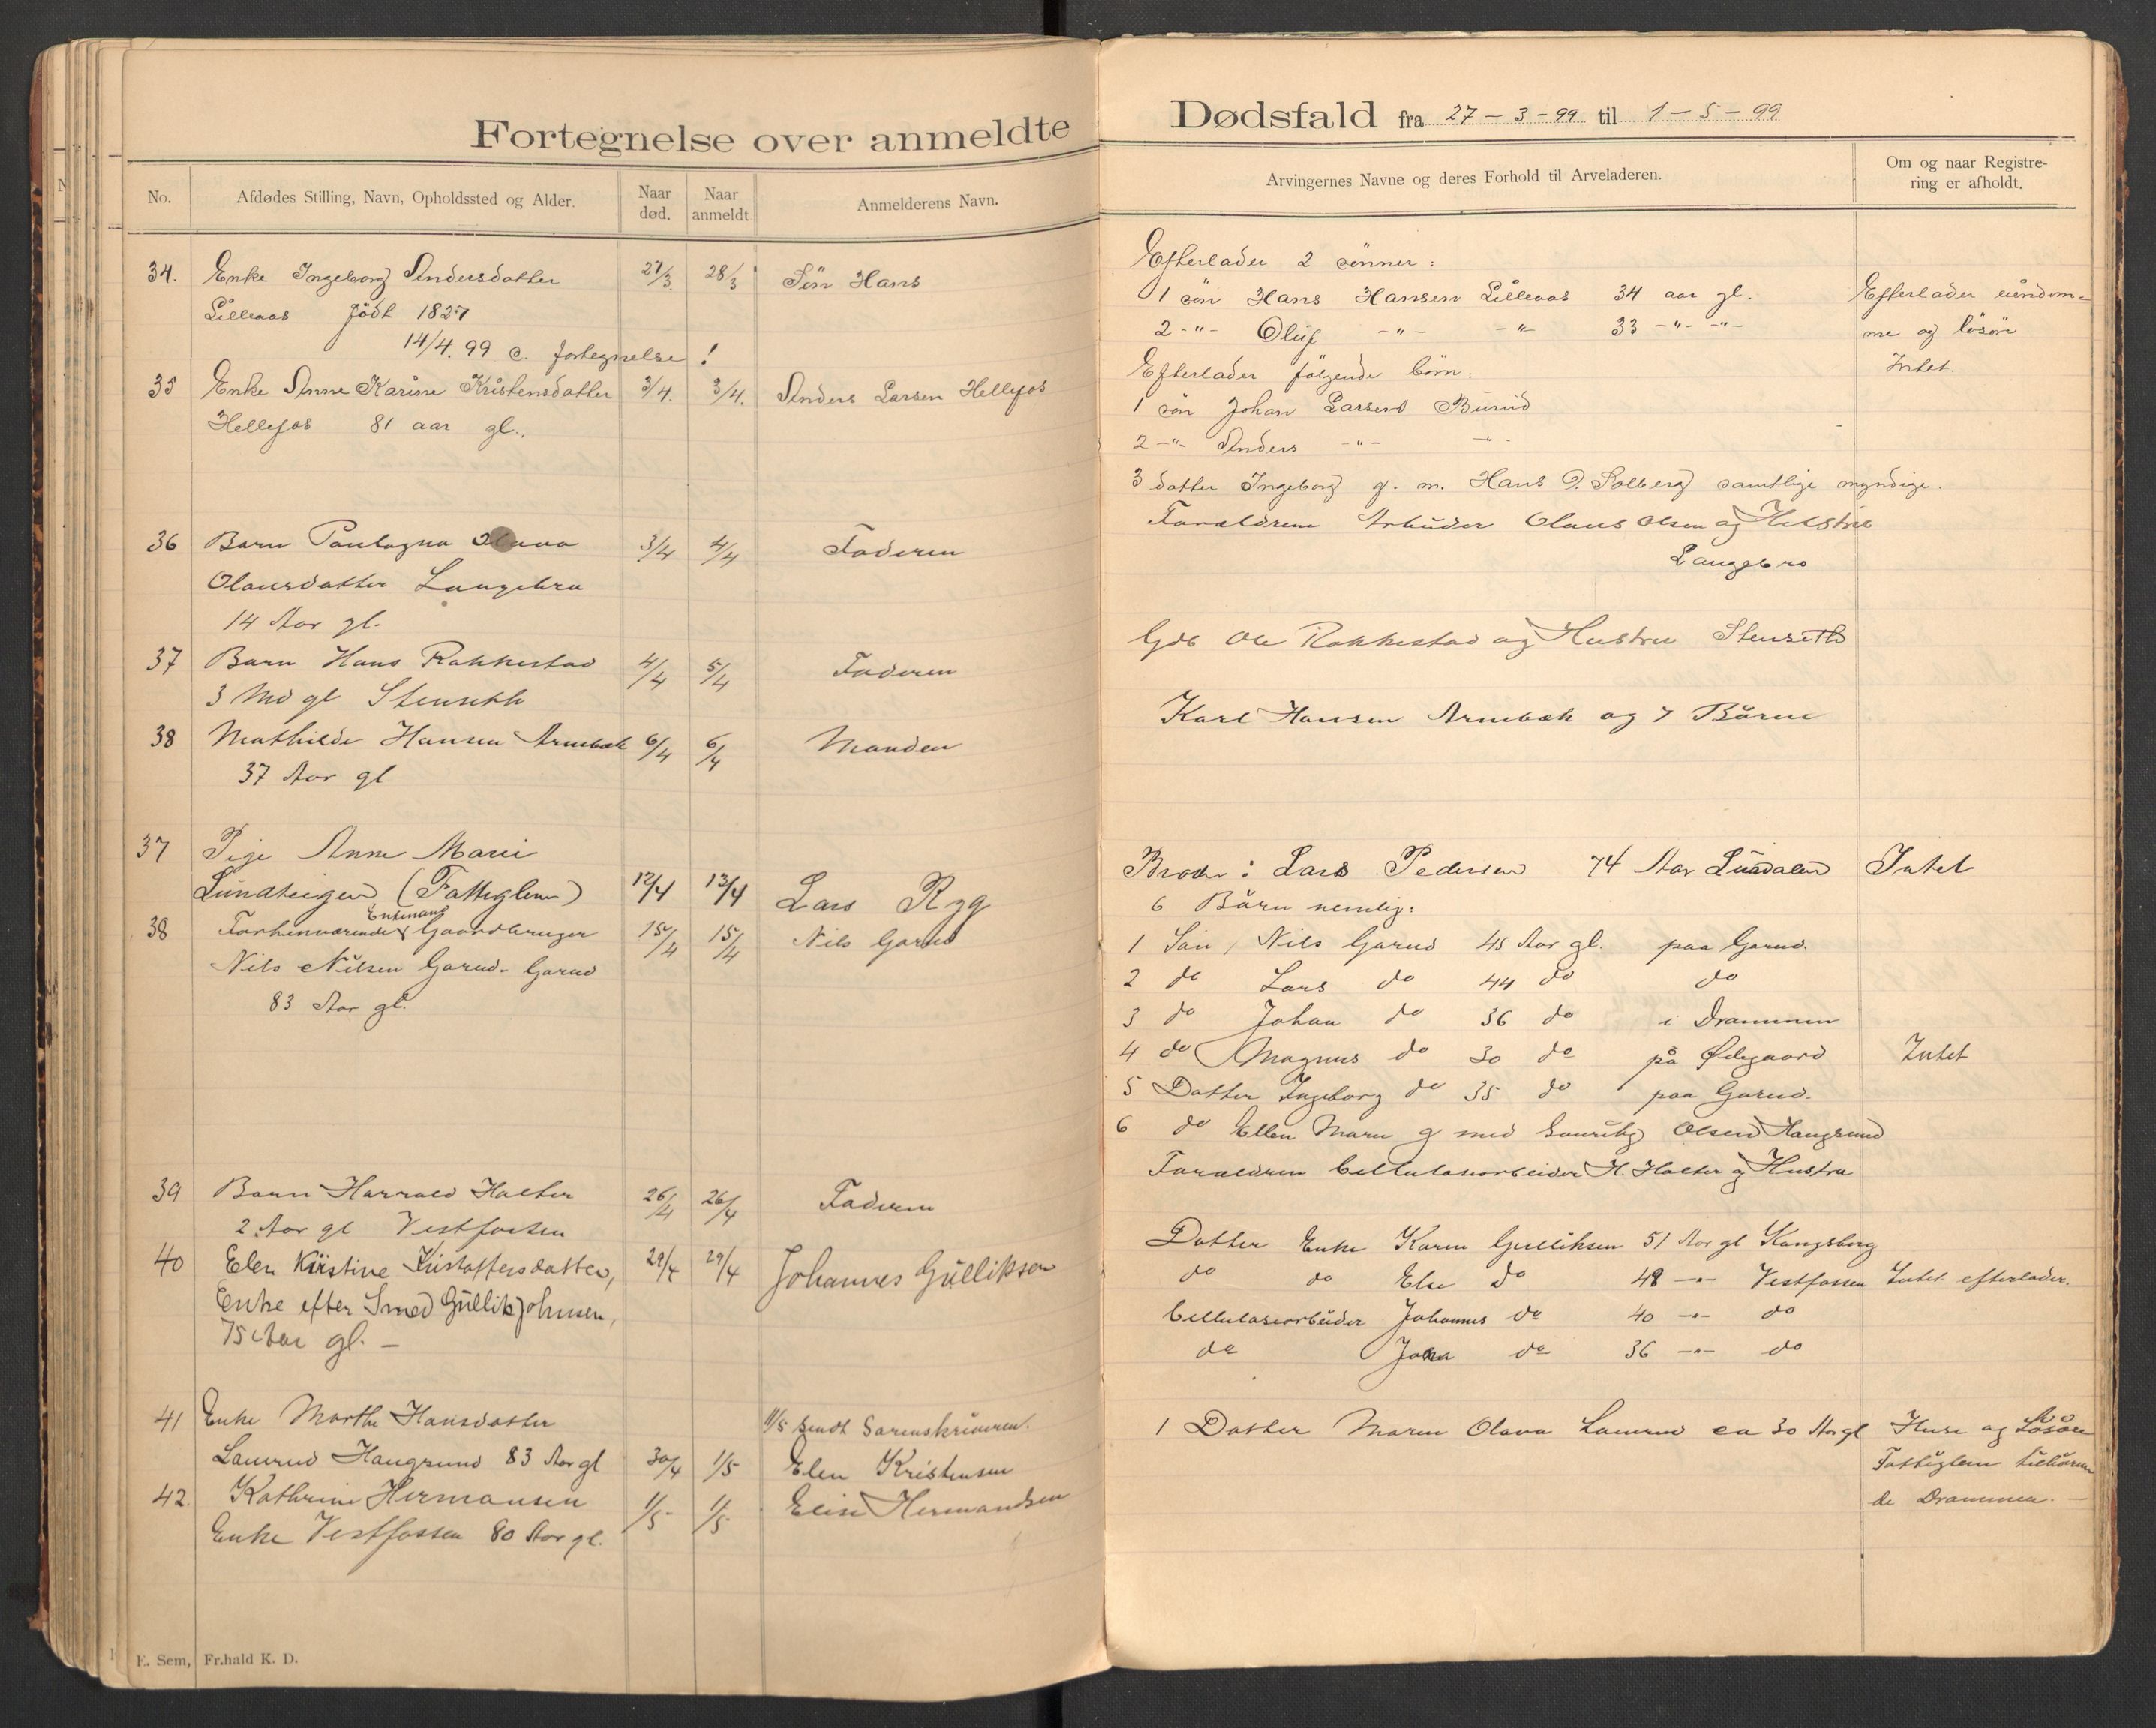 Fortegnelse over anmeldte
No.
Afdødes Stilling, Navn, Opholdssted og Alder.
Naar død.
Naar anmeldt
Anmelderens Navn.
34. Enke Ingeborg Andersdatter 27/3. 28/3 Sön Hans
Lilleaas födt 1827
14/4. 99 c. fortegnelse !
35 Enke Anne Karine Kristensdatter 3/4. 3/4. Anders Larsen Hellefos
Hellefos 81 aar gl.
36 Barn Paulagna Olava 3/4 4/4 Faderen
Olausdatter Langebro
14 Aar gl.
37 Barn Hans Rakkestad 4/4 5/4 Faderen
3 Md gl Stenseth
38 Mathilde Hansen Arnebæk 6/4 6/4 Manden
37 Aar gl
37 Pige Anne Marie
Lundteigen (Fattiglem) 12/4 13/4 Lars Ryg
Enkmand
38 Forhenværende Gaardbruger 15/4 15/4 Nils Garud
Nils Nilsen Garud - Garud
83 Aar gl.
39 Barn Harrald Halter 26/4 26/4 Faderen
2 Aar gl Vestfossen
40 Elen Kirstine Kristoffersdatter, 29/4 29/4 Johannes Gulliksen
Enke efter Smed Gullik Johnsen,
75 Aar gl. —
41 Enke Marthe Hansdatter 11/5 sendt Sorenskriveren.
Laurud Haugsund 83 Aar gl 30/4 1/5 Elen Kristensen
42. Kathrine Hermansen 1/5 1/5 Elise Hermandsen
Enke Vestfossen 80 Aar gl.
E. Sem, Fr.hald K. D.
Dødsfald fra 27-3-99 til 1-5-99
Arvingernes Navne og deres Forhold til Arveladeren.
Om og naar Registre-
ring er afholdt.
Efterlader 2 sönner:
1 sön Hans Hansen Lilleaas 34 aar gl. Efterlader eiendom-
2 -"- Oluf -"- -"- 33 -"- -"- me og lösöre
Efterlader fölgende börn: Intet.
1 sön Johan Larsen Burud
2 -"- Anders -"- -"-
3 datter Ingeborg g. m. Hans O. Solberg samtlige myndige.
Forældrene Arbeider Olaus Olsen og Hustru
Langebro
Gdb Ole Rakkestad og Hustru Stenseth
Karl Hansen Arnebæk og 7 Børn
Broder: Lars Pedersen 74 Aar Lundalen Intet
6 Börn nemlig:
1 Sön Nils Garud 45 Aar gl. paa Garud.
2 do Lars do 44 do do
3 do Johan do 36 do i Drammen
4 do Magnus do 30 do på Ødegaard Intet
5 Datter Ingeborg do 35 do paa Garud.
6 do Ellen Marn g med Olsen Haugsund
Forældrene Cellulosearbeider H. Halter og Hustru
Datter Enke Karen Gulliksen 51 Aar gl Kongsberg
do do Else do 48 -"- Vestfossen Intet efterlader.
Cellulosearbeider Johannes do 40 -"- do
do do 36 -"- do
1 Datter Maren Olava Laurud ca 30 Aar gl Huse og Lösöre
Fattiglem tilhören
de Drammen. —